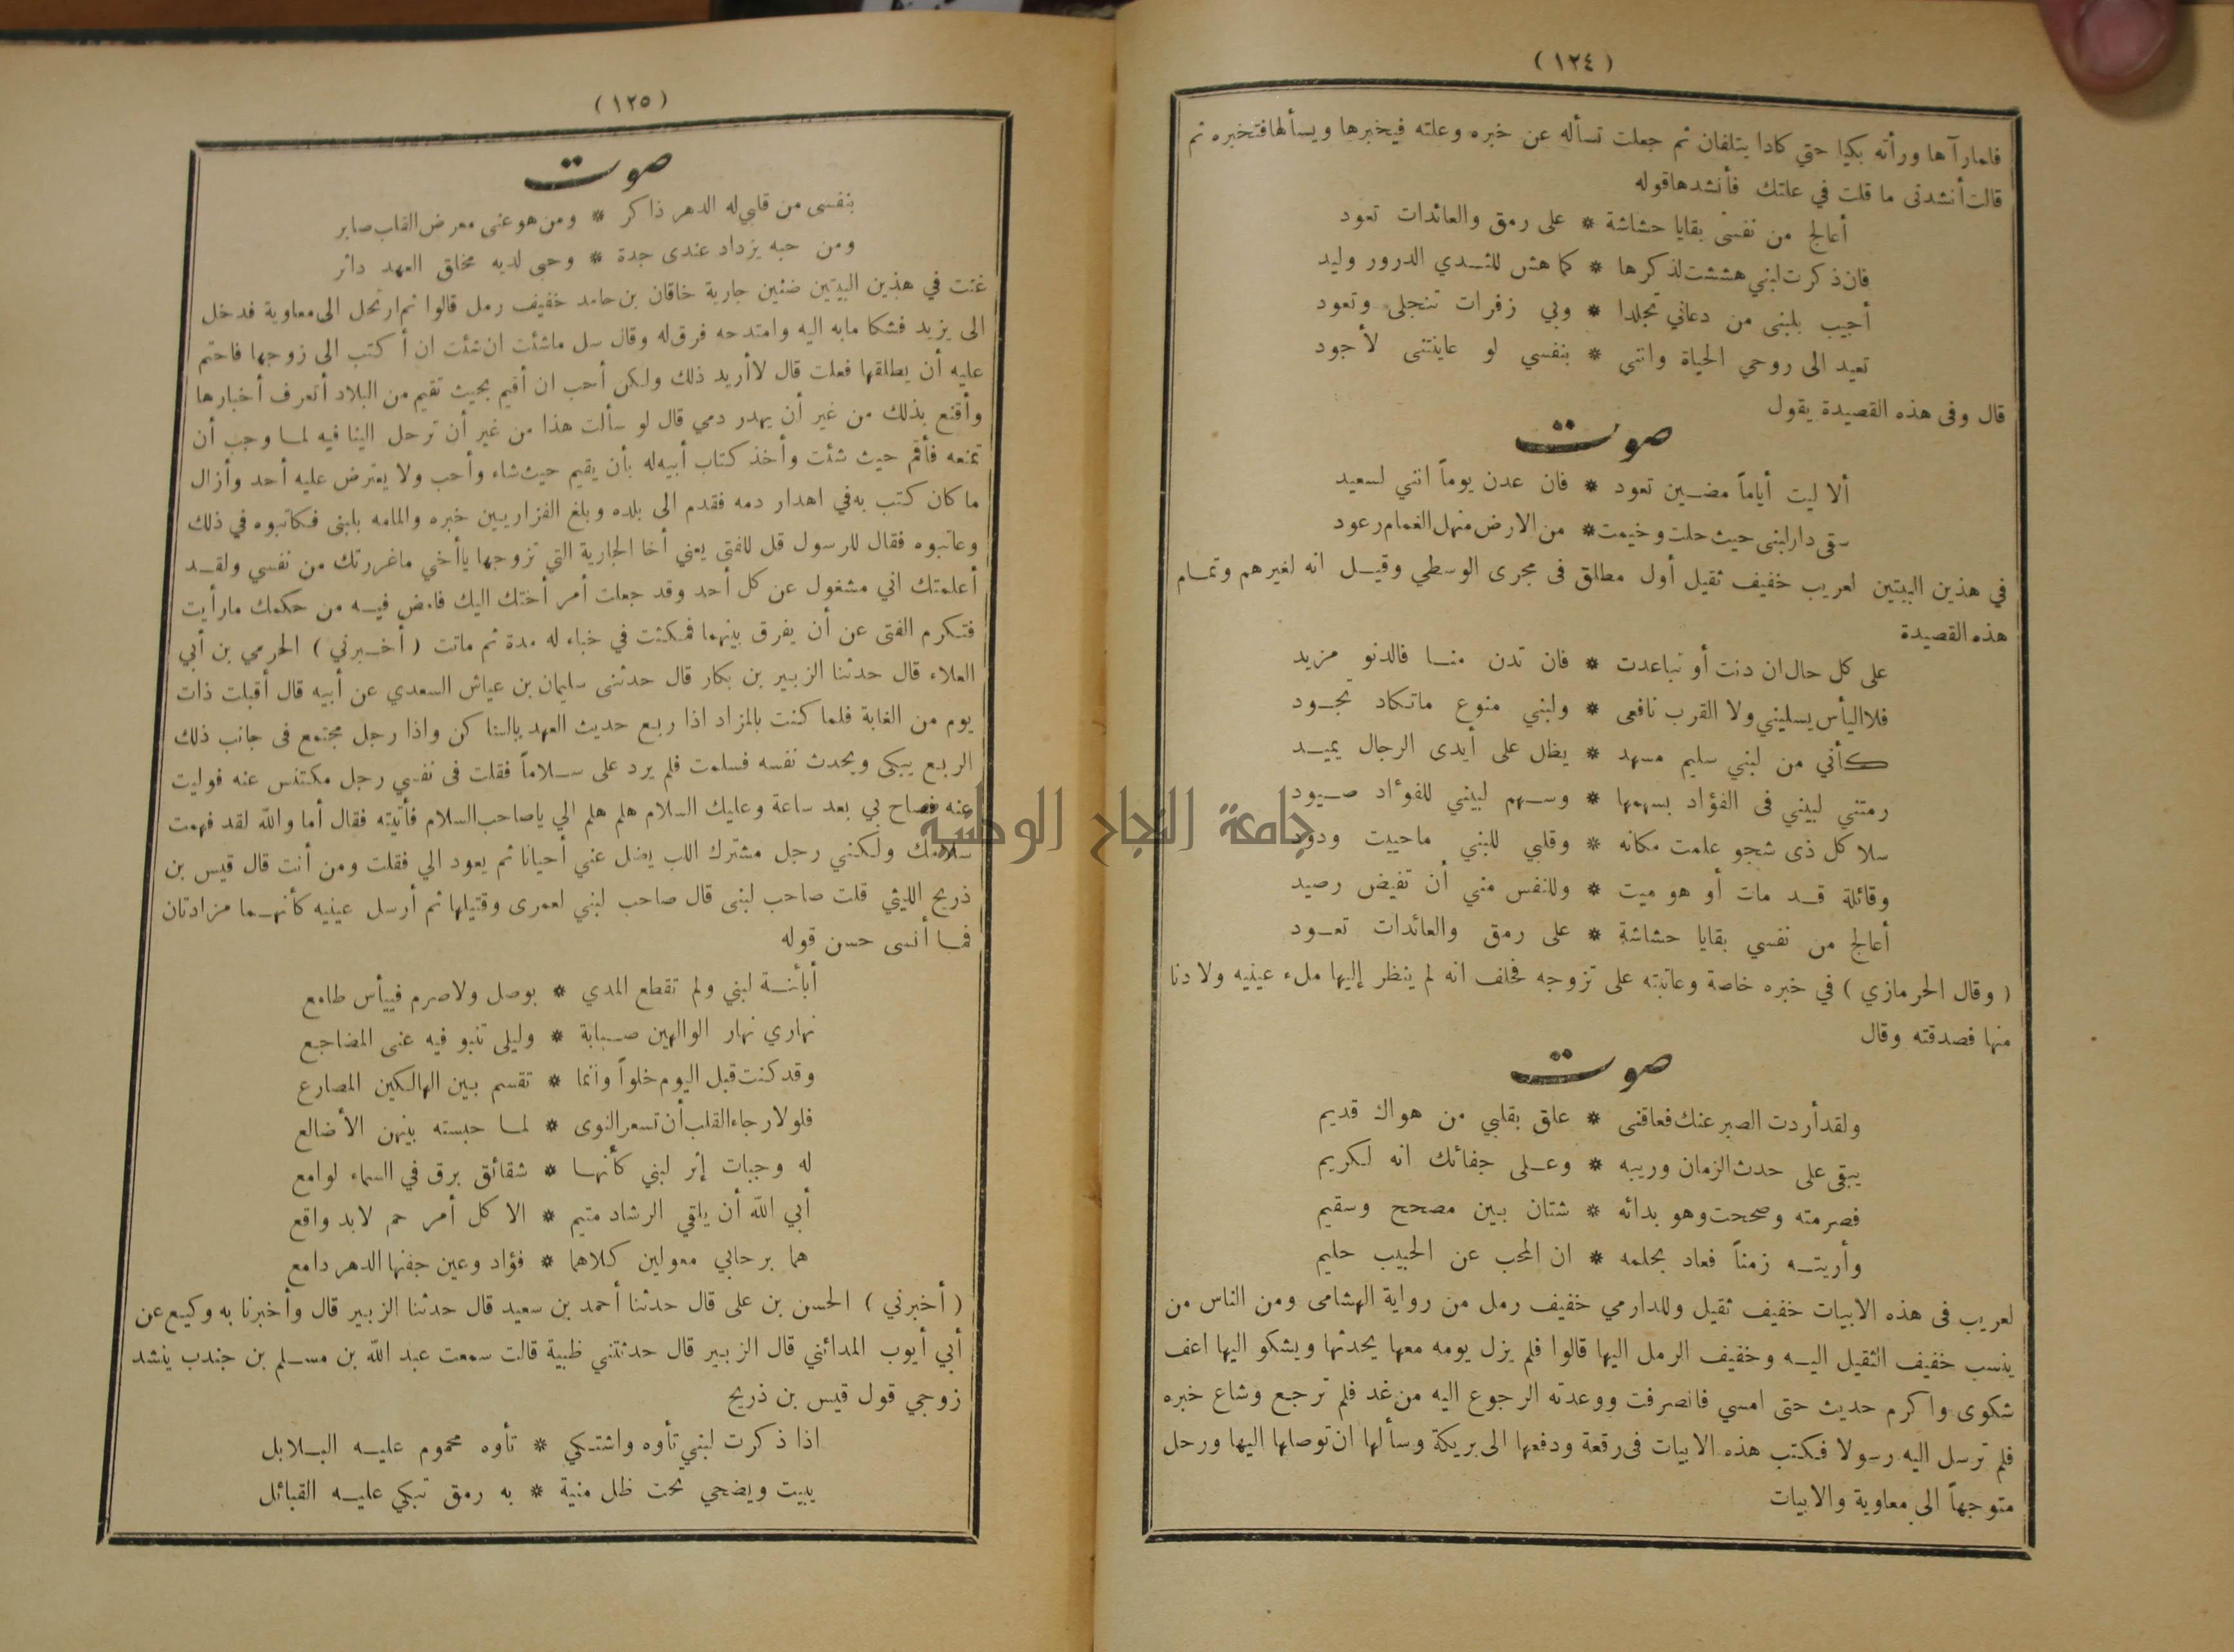 (١٢٤)
فلمارآها ورأته بكيا حتي كادا يتلفان ثم جعلت تسأله عن خبره وعلته فيخبرها ويسألهافتخبره ثم
قالت أنشدنى ما قلت في علتك فأنشدهاقوله
أعالج من نفسى بقايا حشاشة * على رمق والعائدات تعود
فان ذكرت لبني هششت لذكرها * كما هش للثدي الدرور وليد
أجيب بلبنى من دعاني تجلدا * وبي زفرات تنجلى وتعود
تعيد الى روحي الحياة وانني * بنفسي لو عاينتنى لأجود
قال وفى هذه القصيدة يقول
صوت
ألا ليت أياماً مضين تعود * فان عدن يوماً انني لسعيد
سقى دارلبنى حيث حلت وخيمت * من الارض منهل الغمام رعود
في هذين البيتين لعريب خفيف ثقيل أول مطلق فى مجرى الوسطي وقيل انه لغيرهم وتمام
هذه القصيدة
على كل حال ان دنت أو تباعدت * فان تدن منا فالدنو مزيد
فلا اليأس يسليني ولا القرب نافعى * ولبني منوع ماتكاد تجود
كأني من لبني سليم مسهد * يظل على أيدى الرجال يميد
رمتني لبيني فى الفؤاد بسهمها * وسهم لبيني للفؤاد صيود
سلا كل ذى شجو علمت مكانه * وقلبي للبني ماحييت ودود
وقائلة قد مات أو هو ميت * وللنفس مني أن تفيض رصيد
أعالج من نفسي بقايا حشاشة * على رمق والعائدات تعود
(وقال الحرمازي) في خبره خاصة وعاتبته على تزوجه فحلف انه لم ينظر إليها ملء عينيه ولا دنا
منها فصدقته وقال
صوت
ولقدأردت الصبر عنك فعاقنى * علق بقلبي من هواك قديم
يبقى على حدث الزمان وريبه * وعلى جفائك انه لكريم
فصرمته وصححت وهو بدائه * شتان بين مصحح وسقيم
وأريته زمناً فعاد بحلمه * ان المحب عن الحبيب حليم
لعريب فى هذه الابيات خفيف ثقيل وللدارمي خفيف رمل من رواية الهشامى ومن الناس من
ينسب خفيف الثقيل اليه وخفيف الرمل اليها قالوا فلم يزل يومه معها يحدثها ويشكو اليها اعف
شكوى واكرم حديث حتى امسي فانصرفت ووعدته الرجوع اليه من غد فلم ترجع وشاع خبره
فلم ترسل اليه رسولا فكتب هذه الابيات فى رقعة ودفعها الى بريكة وسألها ان توصلها اليها ورحل
متوجهاً الى معاوية والابيات
(١٢٥)
صوت
بنفسى من قلبي له الدهر ذاكر * ومن هو عنى معرض القلب صابر
ومن حبه يزداد عندى جدة * وحبى لديه مخلق العهد داثر
غنت في هذين البيتين ضنين جارية خاقان بن حامد خفيف رمل قالوا ثم ارتحل الى معاوية فدخل
الى يزيد فشكا مابه اليه وامتدحه فرق له وقال سل ماشئت ان شئت ان أكتب الى زوجها فاحتم
عليه أن يطلقها فعلت قال لاأريد ذلك ولكن أحب ان أقيم بحيث تقيم من البلاد أتعرف أخبارها
وأقنع بذلك من غير أن يهدر دمي قال لو سألت هذا من غير أن ترحل الينا فيه لما وجب أن
تمنعه فأقم حيث شئت وأخذ كتاب أبيه له بأن يقيم حيث شاء وأحب ولا يعترض عليه أحد وأزال
ما كان كتب به في اهدار دمه فقدم الى بلده وبلغ الفزاريين خبره والمامه بلبنى فكاتبوه في ذلك
وعاتبوه فقال للرسول قل للفتى يعني أخا الجارية التي تزوجها ياأخي ماغررتك من نفسي ولقد
أعلمتك اني مشغول عن كل أحد وقد جعلت أمر أختك اليك فامض فيه من حكمك مارأيت
فتكرم الفتى عن أن يفرق بينهما فمكثت في خباء له مدة ثم ماتت (أخبرني) الحرمي بن أبي
العلاء قال حدثنا الزبير بن بكار قال حدثنى سليمان بن عياش السعدي عن أبيه قال أقبلت ذات
يوم من الغابة فلما كنت بالمزاد اذا ربع حديث العهد بالساكن واذا رجل مجتمع فى جانب ذلك
الربع يبكى ويحدث نفسه فسلمت فلم يرد على سلاماً فقلت فى نفسي رجل مكتنس عنه فوليت
عنه فصاح بي بعد ساعة وعليك السلام هلم هلم الي ياصاحب السلام فأتيته فقال أما والله لقد فهمت
سلامك ولكنني رجل مشترك اللب يضل عني أحيانا ثم يعود الي فقلت ومن أنت قال قيس بن
ذريح الليثي قلت صاحب لبنى قال صاحب لبني لعمرى وقتيلها ثم أرسل عينيه كأنهما مزادتان
فما أنسى حسن قوله
أبأئنة لبني ولم تقطع المدي * بوصل ولاصرم فييأس طامع
نهاري نهار الوالهين صبابة * وليلى تنبو فيه عنى المضاجع
وقد كنت قبل اليوم خلواً وانما * تقسم بين الهالكين المصارع
فلولا رجاء القلب أن تسعر النوى * لما حبسته بينهن الأضالع
له وجبات إثر لبني كأنها * شقائق برق في السماء لوامع
أبي الله أن يلقي الرشاد متيم * الا كل أمر حم لابد واقع
هما برحابي معولين كلاهما * فؤاد وعين جفنها الدهر دامع
(أخبرني) الحسن بن على قال حدثنا أحمد بن سعيد قال حدثنا الزبير قال وأخبرنا به وكيع عن
أبي أيوب المدائني قال الزبير قال حدثتني ظبية قالت سمعت عبد الله بن مسلم بن جندب ينشد
زوجي قول قيس بن ذريح
اذا ذكرت لبني تأوه واشتكي * تأوه محموم عليه البلابل
يبيت ويضحي تحت ظل منية * به رمق تبكي عليه القبائل
جامعة النجاح الوطنية